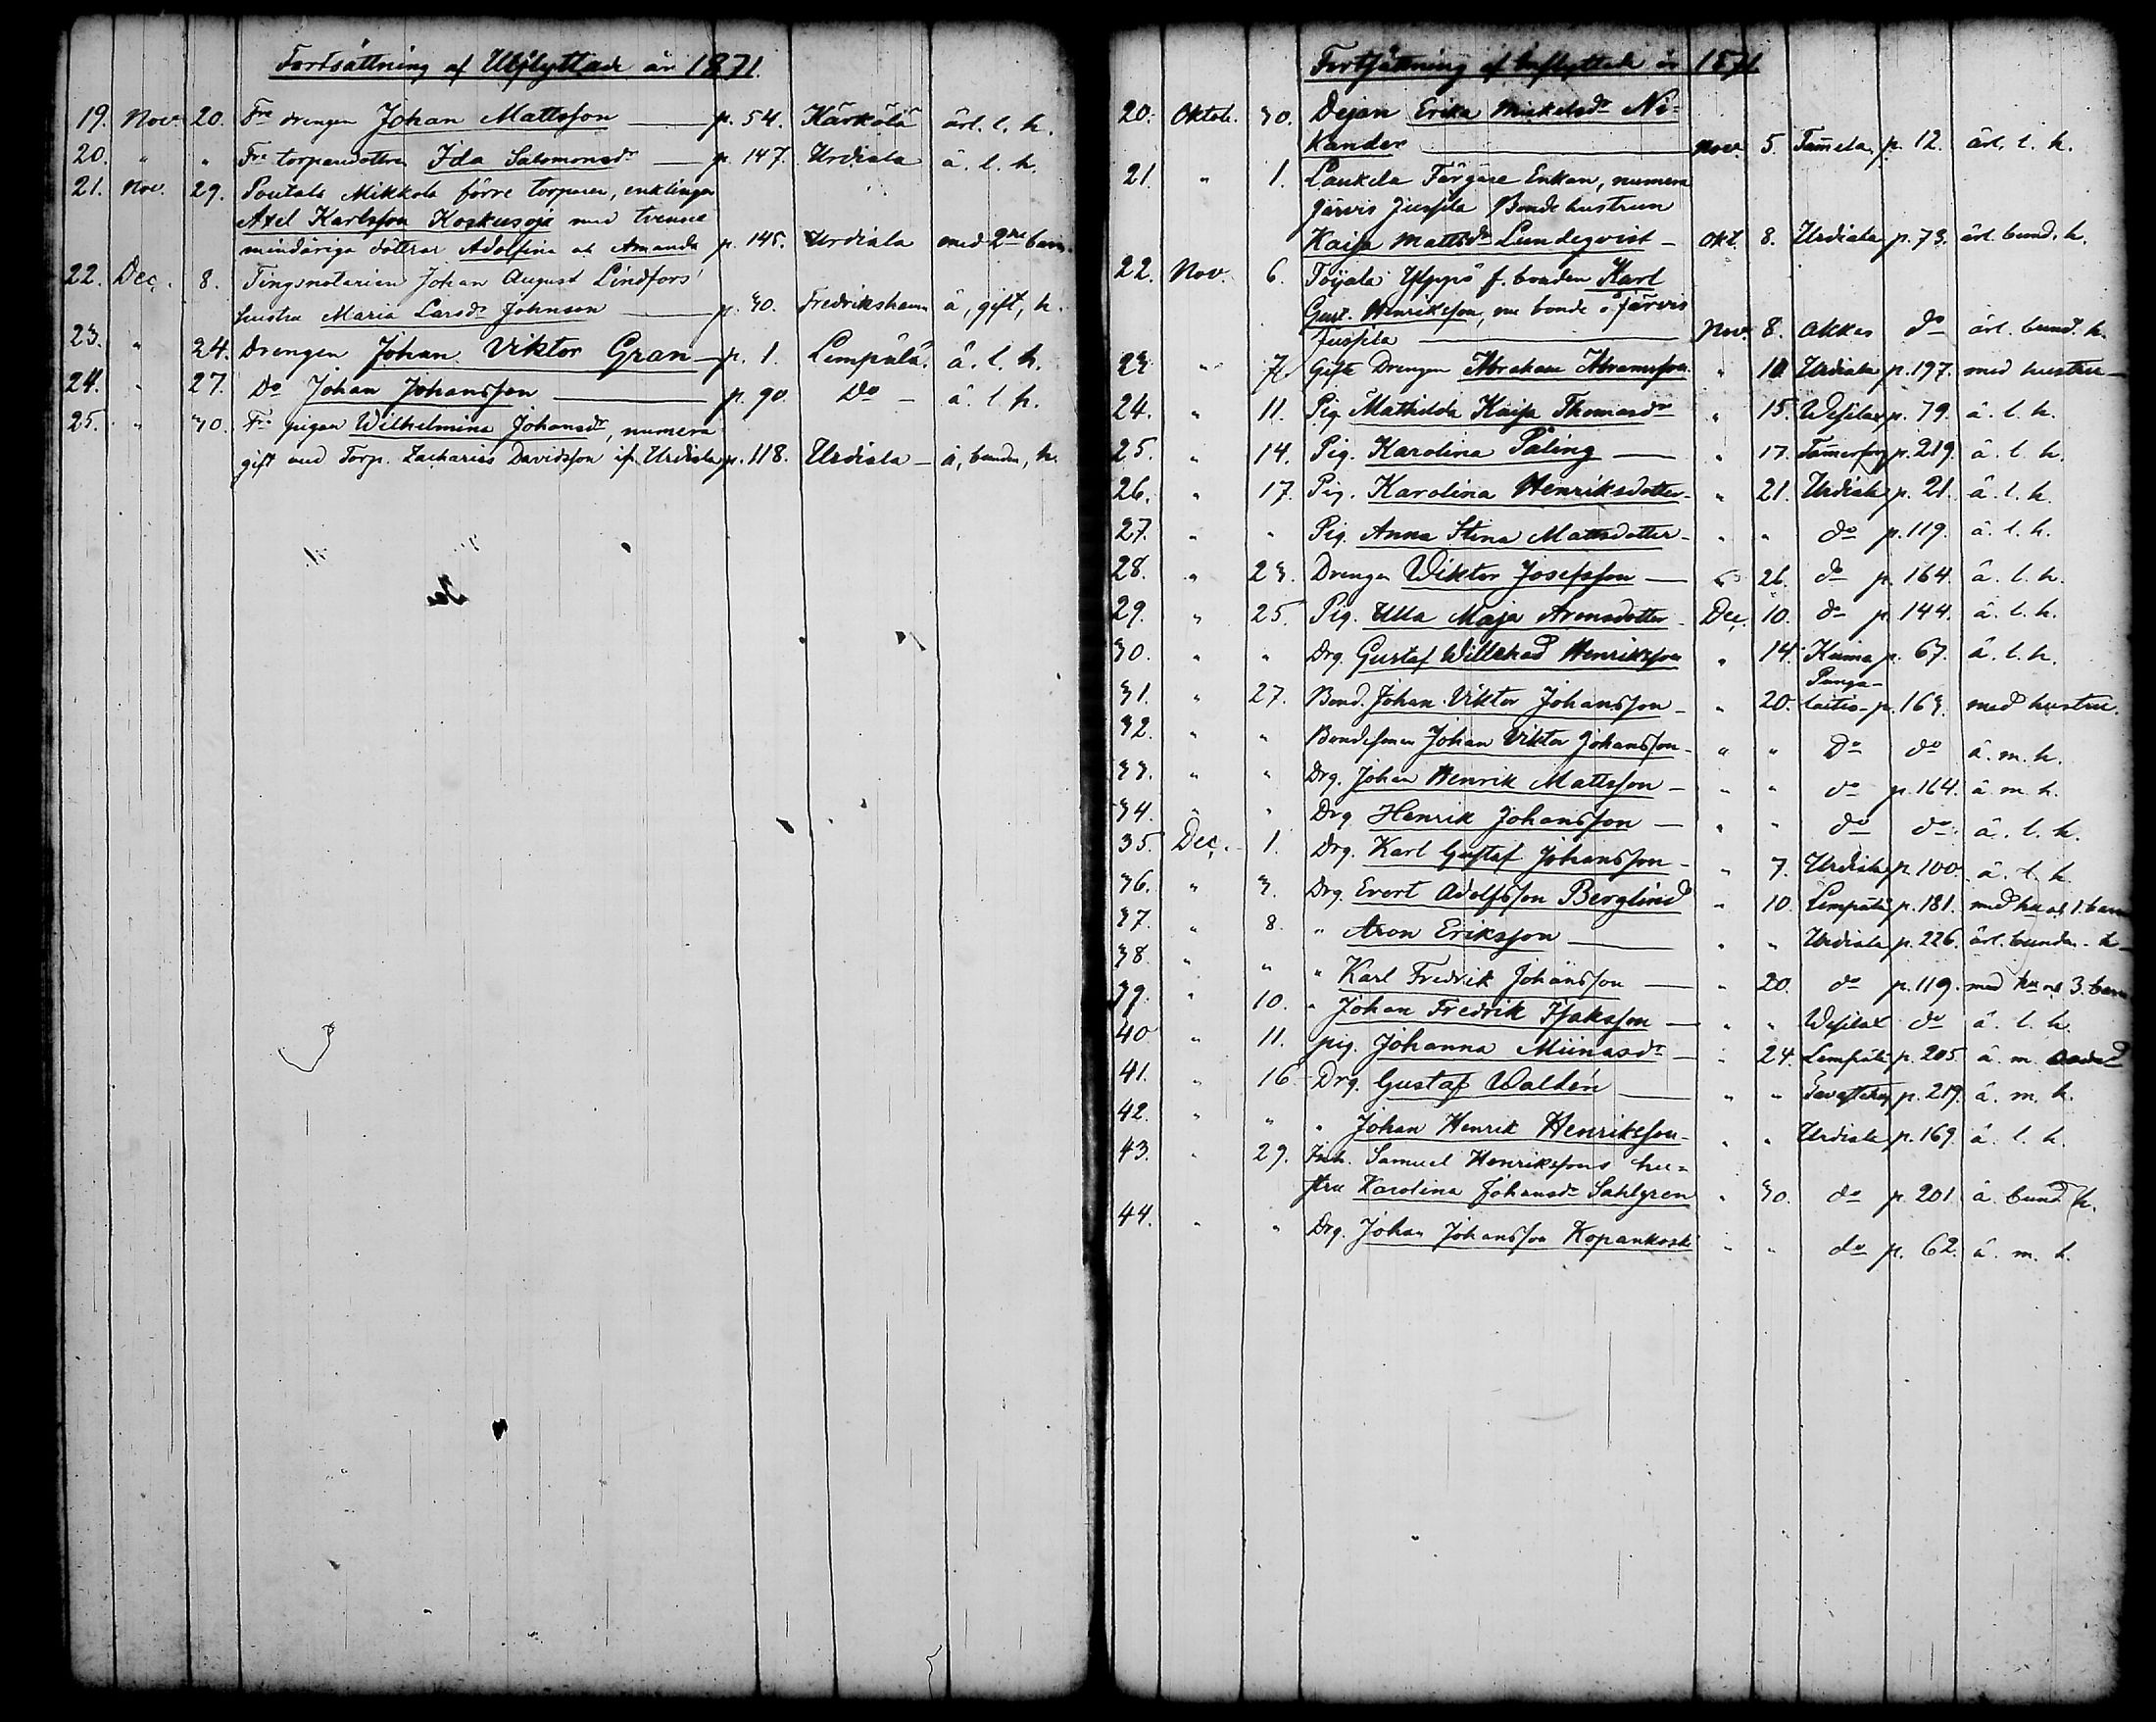 Fortsättning af Utflyttade år 1871.
19. Nov. 20. Fre drengen Johan Mattsson p. 54. Kärkölä ärl. l. h.
20. " " Fre torparedottren Ida Salomonsdr p. 147. Urdiala ä. l. h.
21. Nov. 29. Poutala Mikkola förre torparen, enklingen
Axel Karlsson Koskusoja med tvenne
minderåriga döttrar Adolfina och Amanda p. 145. Urdiala med 2ne barn.
22. Dec. 8. Tingsnotarien Johan August Lindfors'
hustru Maria Larsdr Johnson p. 30. Fredrikshamn ä, gift, h.
23. " 24. Drengen Johan Viktor Gran p. 1. Lempälä. ä. l. h.
24. " 27. Do Johan Johansson p. 90. Do ä. l. h.
25. " 30. Fre pigan Wilhelmina Johansdr, numera
gift med Torp. Zacharias Davidsson ifr. Urdiala p. 118. Urdiala ä, bunden, h.
Fortsättning af Inflyttade år 1871.
20. Oktob. 30. Dejan Erika Mickelsdr Ni-
kander Nov. 5. Tammela p. 12. ärl. l. h.
21. " 1. Laukela Färgare Enkan, numera
Järvis Jussila Bonde hustrun
Kajsa Mattsdr Lundeqvist Okt. 8. Urdiala p. 73. ärl. bund. h.
22. Nov. 6. Toijala f. bonden Karl
Gust. Henriksson, nu bonde å Järvis
Jussila Nov. 8. Akkas do ärl. bund. h.
23. " 7. Gifte Drengen Abraham Abramsson " 10. Urdiala p. 197. med hustru
24. " 11. Pig. Mathilda Kajsa Thomasdr " 15. Wesilax p. 79. ä. l. h.
25. " 14. Pig. Karolina Påling " 17. Tammerfors p. 219. ä. l. h.
26. " 17. Pig. Karolina Henriksdotter " 21. Urdiala p. 21. ä. l. h.
27. " " Pig. Anna Stina Mattsdotter " " do p. 119. ä. l. h.
28. " 23. Drengen Wiktor Josefsson " 26. do p. 164. ä. l. h.
29. " 25. Pig. Ulla Maja Aronsdotter Dec. 10. do p. 144. ä. l. h.
30. " " Drg. Gustaf Willehad Henriksson " 14. Kuima p. 67. ä. l. h.
31. " 27. Bond. Johan Viktor Johansson " 20. Punga-
laitio p. 163. med hustru.
32. " " Bondesonen Johan Viktor Johansson " " Do do ä. m. h.
33. " " Drg. Johan Henrik Mattsson " " do p. 164. ä. m. h.
34. " " Drg. Henrik Johansson " " do do ä. l. h.
35. Dec. 1. Drg. Karl Gustaf Johansson " 7. Urdiala p. 100. ä. l. h.
36. " 3. Drg. Evert Adolfsson Berglind " 10. Lempälä p. 181. med hu och 1. barn
37. " 8. " Aron Eriksson " " Urdiala p. 226. ärl. bunden h.
38. " " " Karl Fredrik Johansson " 20. do p. 119. med hu och 3. barn
39. " 10. " Johan Fredrik Isaksson " " Wesilax do ä. l. h.
40. " 11. pig. Johanna Miinasdr " 24. Lempälä p. 205. ä. m.
41. " 16. Drg. Gustaf Waldén " " p. 219. ä. m. h.
42. " " " Johan Henrik Henriksson " " Urdiala p. 169. ä. l. h.
43. " 29. Inh. Samuel Henrikssons hu-
stru Karolina Johansdr Sahlgren " 30. do p. 201. ä. bund. h.
44. " " Drg. Johan Johansson Kopankoski " " do p. 62. ä. m. h.